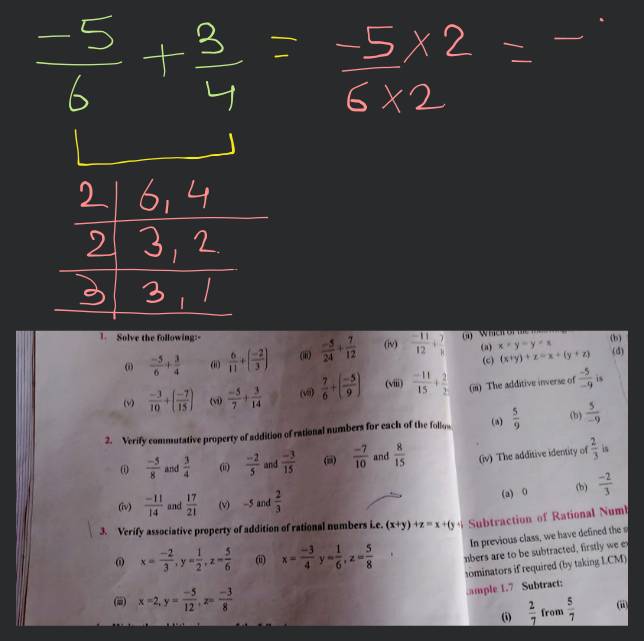 -5/6 + 3/4 = -5×2/6×2 = -
2 | 6, 4
2 | 3, 2
3 | 3, 1
1. Solve the following:-
(i) -5/6 + 3/4 (ii) 6/11 + (-2/3) (iii) -5/24 + 7/12 (iv) -11/12 +
(v) -3/10 + (-7/15) (vi) -5/7 + 3/14 (vii) 7/6 + (-5/9) (viii) -11/15 +
2. Verify commutative property of addition of rational numbers for each of the
(i) -5/8 and 3/4 (ii) -2/5 and -3/15 (iii) -7/10 and 8/15
(iv) -11/14 and 17/21 (v) -5 and 2/3
3. Verify associative property of addition of rational numbers i.e. (x+y) +z = x +(y
(i) x = -2/3, y = 1/2, z = 5/6 (ii) x = -3/4 y = 1/6, z = 5/8
(iii) x =2, y = -5/12, z= -3/8
(ii) Which of the
(a) x - y = y - x (b)
(c) (x+y) + z = x + (y + z) (d)
(iii) The additive inverse of -5/-9 is
(a) 5/9 (b) 5/-9
(iv) The additive identity of 2/3 is
(a) 0 (b) -2/3
Subtraction of Rational
In previous class, we have defined the
are to be subtracted, firstly we
if required (by taking LCM)
1.7 Subtract:
(i) 2/7 from 5/7 (ii)